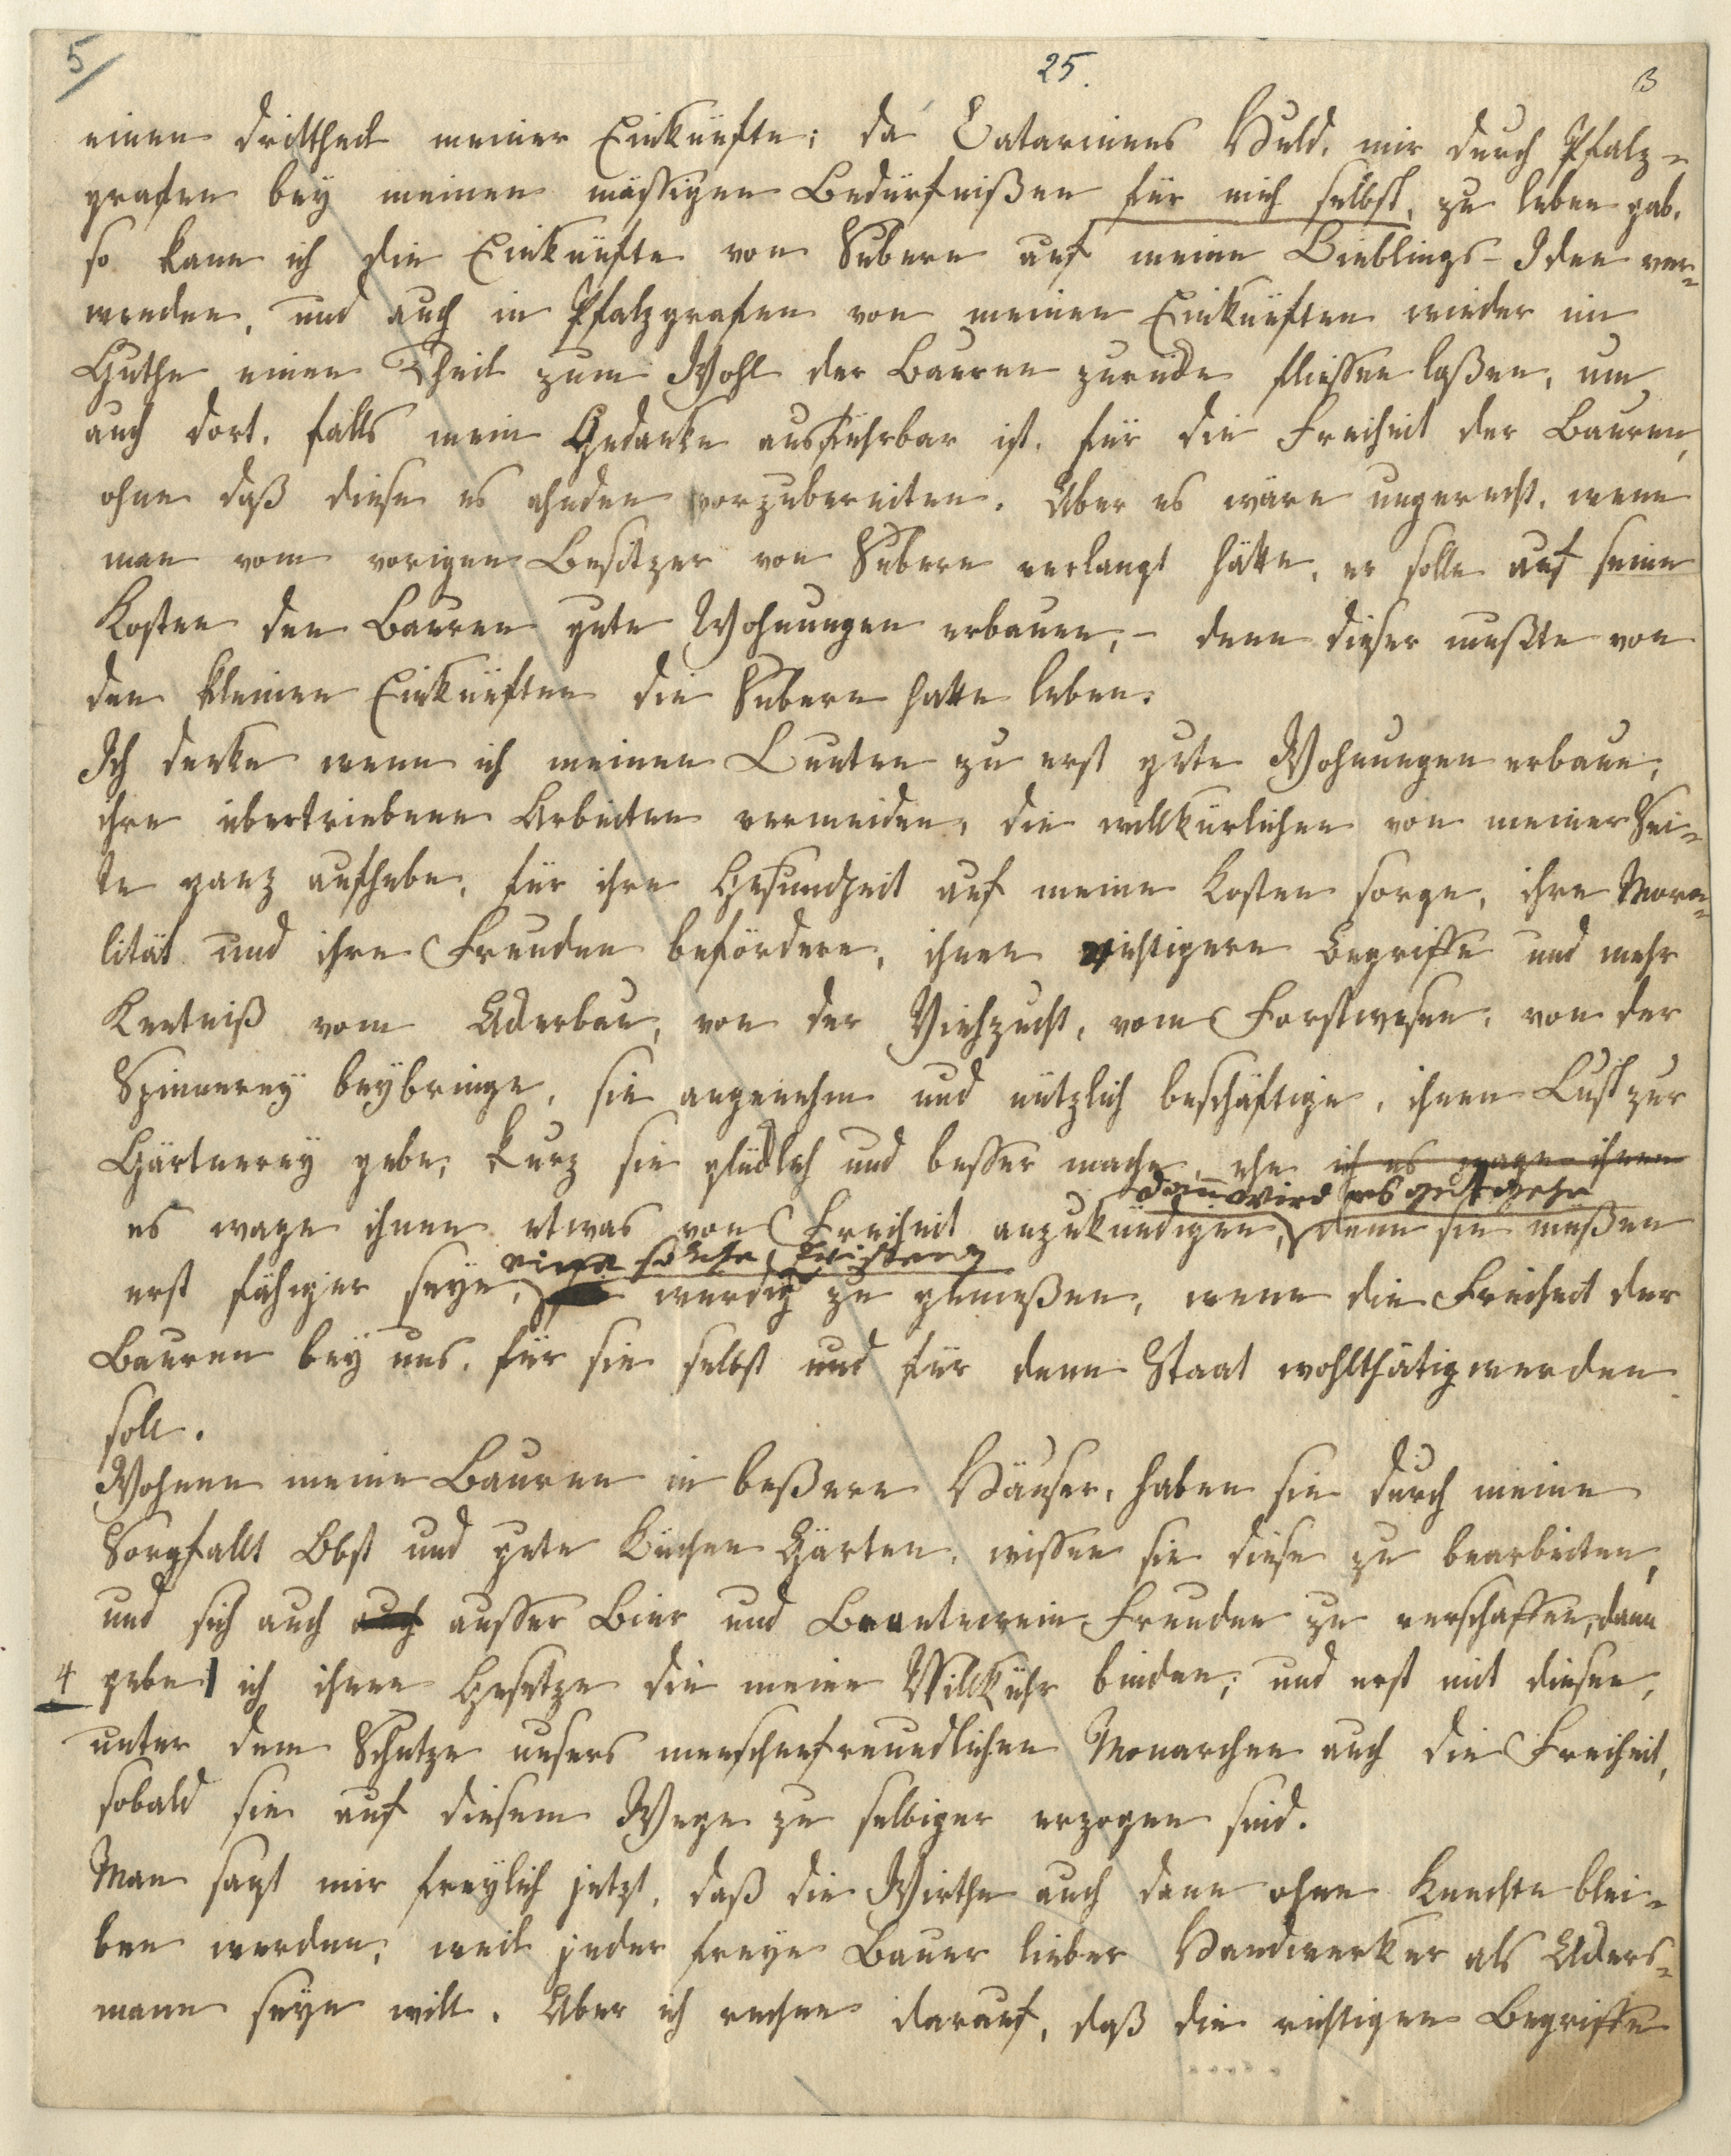 5
25.
3
einen dritthel meiner Einkünfte; da Catarinens Huld, mir durch Pfalz-
grafen bey meinen mässigen Bedürfnißen für mich selbst, zu leben gab,
so kann ich die Einkünfte von Subern auf meine Lieblings-Idee ver-
wenden, und auch in Pfalzgrafen von meinen Einkünften wieder im
Guthe einen Theil zum Wohl der Bauren zurücke fliessen laßen, um
auch dort, falls mein Gedanke ausführbar ist, für die Freiheit der Bauren,
ohne daß diese es ahnden vorzubereiten. Aber es wäre ungerecht, wenn
man vom vorigen Besitzer von Subern verlangt hätte, er solle auf seine
Kosten den Bauren gute Wohnungen erbauen, – denn dieser mußte von
den kleinen Einkünften die Subern hatte leben.
Ich denke wenn ich meinen Leuten zu erst gute Wohnungen erbaue,
ihre übertriebene Arbeiten vermeiden, die willkürlichen von meiner Sei-
te ganz aufhebe, für ihre Gesundheit auf meine Kosten sorge, ihre Mora-
lität und ihre Freuden befördere, ihnen richtigere Begriffe und mehr
Kentniß vom Ackerbau, von der Viehzucht, vom Forstwesen, von der
Spinnerey beybringe, sie angenehm und nützlich beschäftige, ihnen Lust zur
Gärtnerey gebe, kurz sie glücklich und besser mache, ehe ich es wage ihnen
dann wird es gut gehn
es wage ihnen etwas von Freiheit anzukündigen, denn sie müßen
eine solche Existenz
erst fähiger seyn, würdig zu genießen, wenn die Freiheit der
Bauren bey uns, für sie selbst und für denn Staat wohlthätig werden
soll.
Wohnen meine Bauren in beßere Häuser, haben sie durch meine
Sorgfallt Obst und gute Küchen Gärten, wissen sie diese zu bearbeiten,
und sich auch auch ausser Bier und Brantewein Freuden zu verschaffen, dann
4 gebe ich ihnen Gesetze die meine Willkühr binden; und erst mit diesen,
unter dem Schutze unsers menschenfreundlichen Monarchen auch die Freiheit,
sobald sie auf diesem Wege zu selbiger erzogen sind.
Man sagt mir freylich jetzt, daß die Wirthe auch dann ohne Knechte blei-
ben werden, weil jeder freye Bauer lieber Handwerker als Ackers-
mann seyn will. Aber ich rechne darauf, daß die richtigen Begriffe